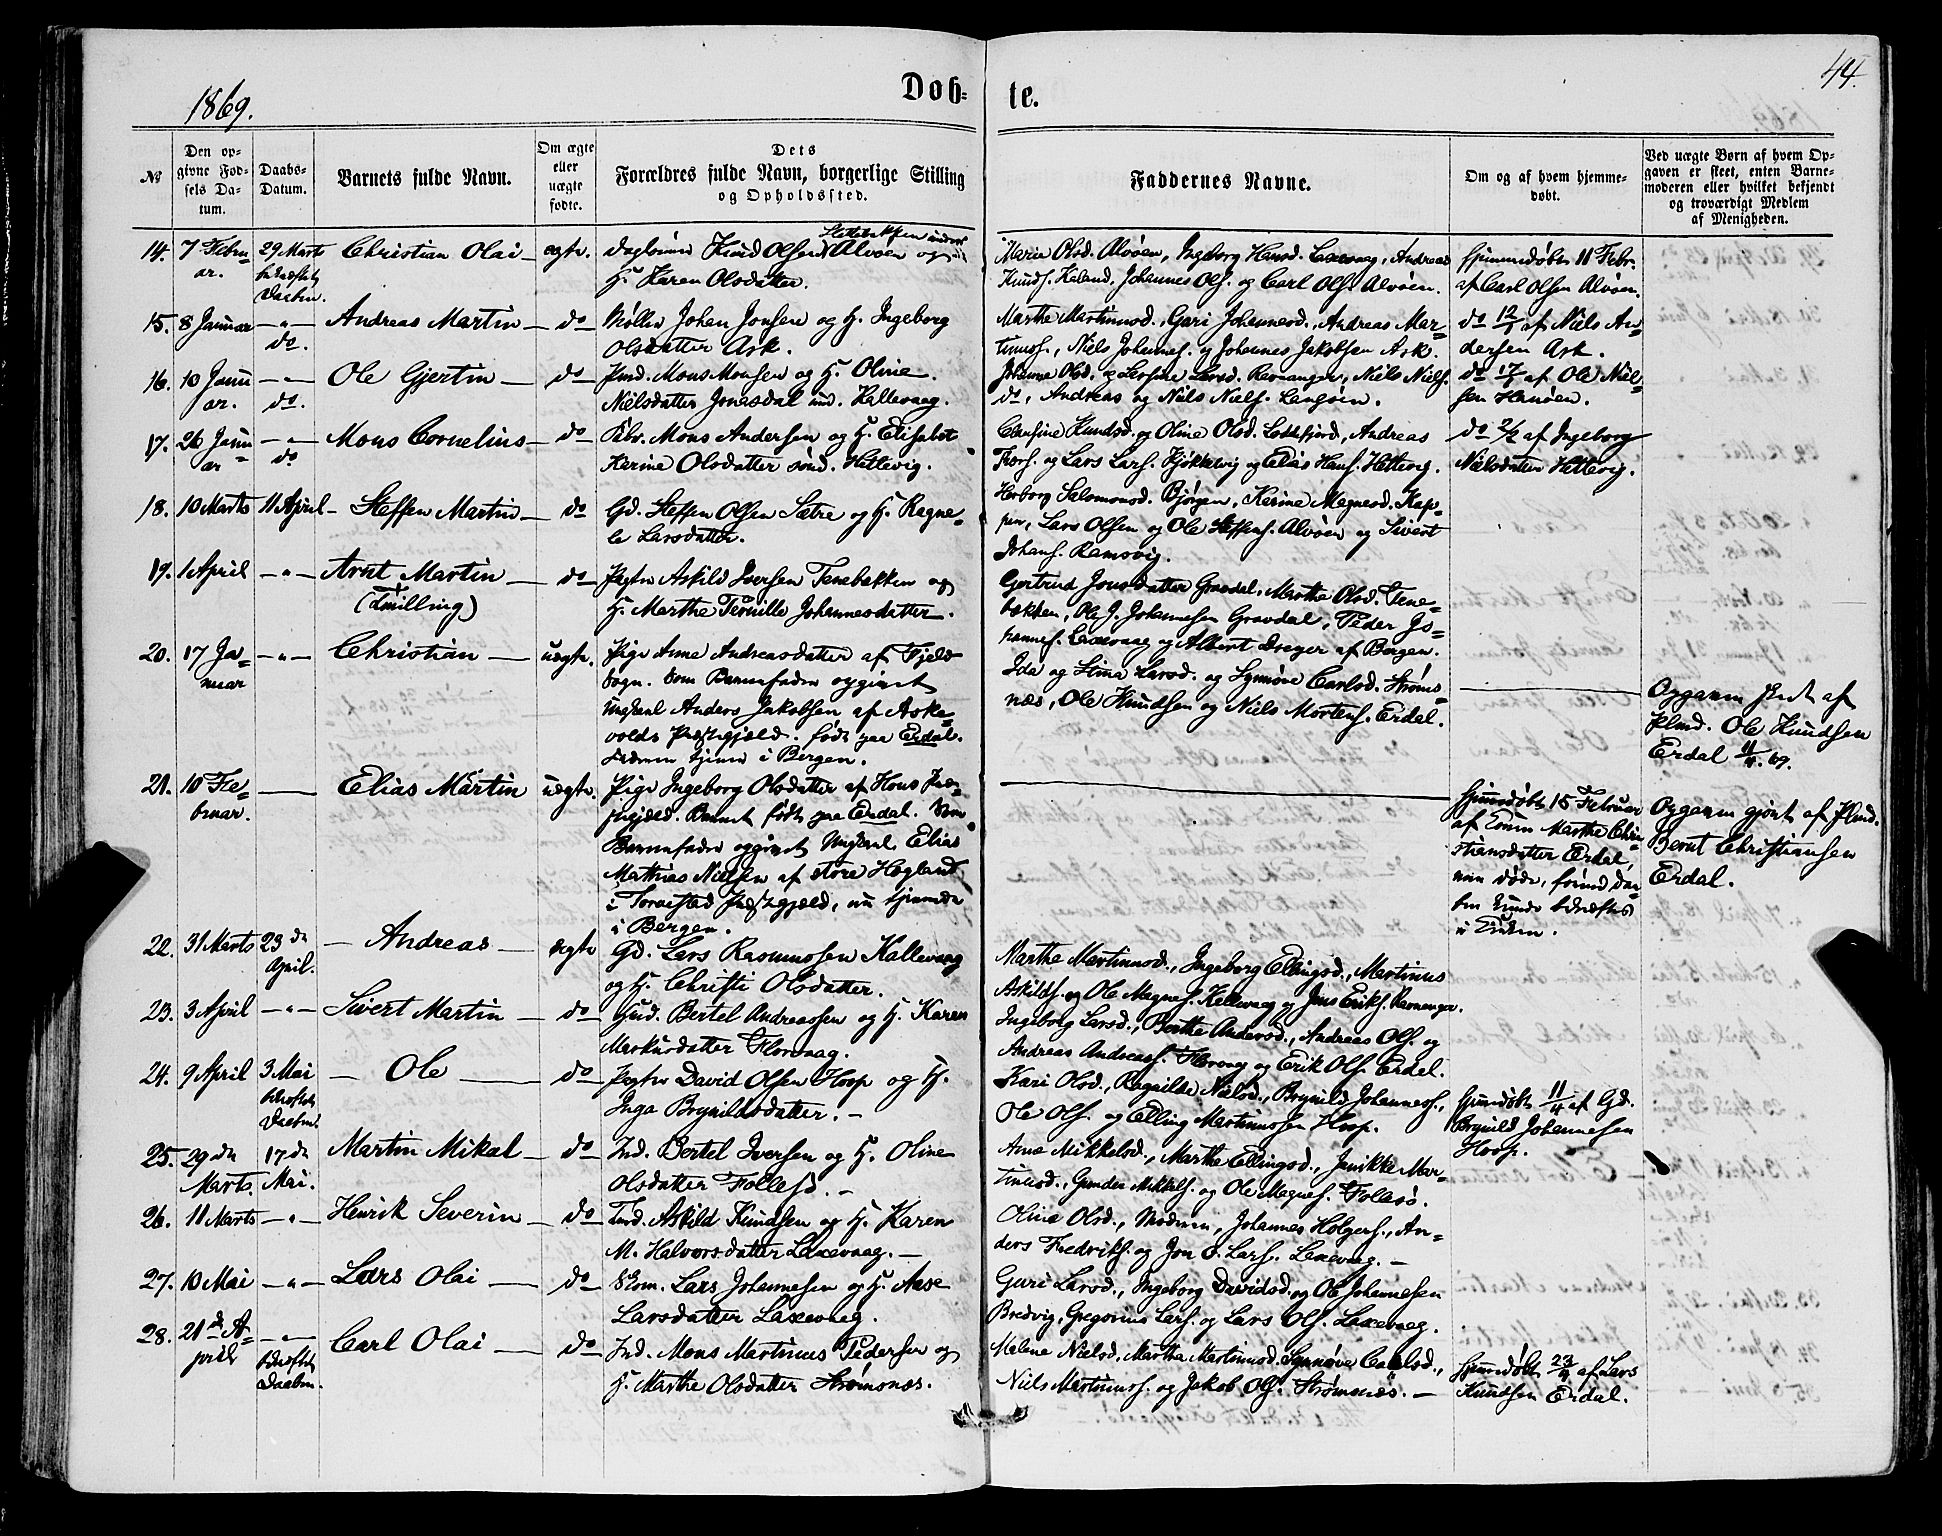 44.
1869.
Døb-
te.
№
Den op-
givne Fød-
sels Da-
tum.
Daabs-
Datum.
Barnets fulde Navn.
Om ægte
eller
uægte
fødte.
Dets
Forældres fulde Navn, borgerlige Stilling
og Opholdssted.
Faddernes Navne.
Om og af hvem hjemme-
døbt.
Ved uægte Børn af hvem Op-
gaven er skeet, enten Barne-
moderen eller hvilket bekjendt
og troværdigt Medlem
af Menigheden.
14. 7 Febru-
ar.
29 Marts
Daaben.
Christian Olai
ægte.
Knud Olsen Alvøen og
H. Karen Olsdatter.
Marie Olsd. Alvøen, Ingeborg Hansd. Laxevaag, Andreas
Knuds. Kaland, Johannes Ols. og Carl Ols. Alvøen.
Hjemmedøbt 11 Febr.
af Carl Olsen Alvøen.
15. 8 Januar
-"-
do.
Andreas Martin
do
Møller Johan Jonsen og H. Ingeborg
Olsdatter Ask.
Marthe Martinusd., Guri Johannesd., Andreas Mar-
tinuss., Niels Johannes. og Johannes Jakobsen Ask.
do 12/1 af Niels An-
dersen Ask.
16. 10 Janu
ar.
-"-
do.
Ole Gjertin
do
Plmd. Mons Monsen og H. Oline
Nielsdatter Jonasdal und. Kallevaag.
Johanne Olsd. og Larsd. Ravnanger, Niels Niels.
do, Andreas og Niels Niels.
do 17/1 af Ole Niel-
sen Hanøen.
17. 26 Janu
ar
-"-
do
Mons Cornelius
do
Mons Andersen og H. Elisabet
Karine Olsdatter Hettevig.
Knudsd. og Oline Olsd. Loddefjord, Andreas
og Lars Lars. Kjøkkelvig og Elias Hans. Hettevig.
do 2/2 af Ingeborg
Nielsdatter Hettevig.
18. 10 Marts
11 April
Steffen Martin
do
Gd. Steffen Olsen Sætre og H. Ragne-
le Larsdatter.
Herborg Salomonsd. Bjørgen, Karine Magnesd. Kap-
pen, Lars Olsen og Ole Steffens. Alvøen og Sivert
Johans. Ramsvig.
19. 1 April
-"-
Arnt Martin
(Tvilling)
do
Pagter Askild Iversen Tenebakken og
H. Marthe Pernille Johannesdatter.
Gertrud Jonsdatter Gravdal, Marthe Olsd. Tene-
bakken, Ole J. Johannesen Gravdal, Peder Jo-
hannes. Laxevaag og Albert Dreyer af Bergen.
20. 17 Ja-
nuar
-"-
Christian
uægte.
Pige Anna Andreasdatter af Fjeld
Sogn. Som Barnefader opgivet
Ungkarl Anders Jakobsen af Aske-
volds Præstegjæld. født paa Erdal.
i Bergen.
Ida og Stina Larsd. og Synnøve Carlsd. Strøms-
næs, Ole Knudsen og Niels Mortens. Erdal.
Opgaven skeet af
Plmd. Ole Knudsen
Erdal 11/4. 69.
21. 10 Fe-
bruar.
Elias Martin
uægte.
Pige Ingeborg Olsdatter af Hous Præ-
stegjæld. Barnet født paa Erdal. Som
Barnefader opgivet Ungkarl Elias
Mathias Nielsen af store Hogland
i Torvestad Præstegjæld, nu tjenende
i Bergen.
Hjemmedøbt 15 Februar
af Konen Marthe Chri-
stiansdatter Erdal,
men døde, forend Daa-
ben kunde bekræftes
i Kirken.
Opgaven gjort af Plmd.
Bernt Christiansen
Erdal.
22. 31 Marts
23 de
April.
Andreas
ægte
Gd. Lars Rasmussen Kallevaag
og H. Christi Olsdatter.
Marthe Martinusd., Ingeborg Ellingsd., Martinus
Askilds. og Ole Magnes. Kallevaag og Jens Eriks. Ravnanger.
23. 3 April
-"-
Sivert Martin
do
Gmd. Bertel Andreassen og H. Karen
Markusdatter Florvaag.
Ingeborg Larsd., Berthe Andersd., Andreas Ols. og
Andreas Andreass. Florvaag og Erik Ols. Erdal.
24. 9 April
3 Mai
bekræftet
Daaben.
Ole
do
Pagter David Olsen Hoop og H.
Inga Brynildsdatter.
Kari Olsd., Ragnilde Nielsd., Brynild Johanness.,
Ole Ols. og Elling Martinussen Hoop.
Hjemmedøbt 11/4 af Gd.
Brynild Johannesen
Hoop.
25. 29 de
Marts
17 de
Mai.
Martin Mikal
do
Ind. Bertel Iversen og H. Oline
Olsdatter Follesø.
Anna Mikkelsd., Marthe Ellingsd., Jenikke Mar-
tinusd., Gunder Mikkels. og Ole Magnes. Follesø.
26. 11 Marts
-"-
Henrik Severin
do
Ind. Askild Knudsen og H. Karen
M. Halvorsdatter Laxevaag.
Olina Olsd., Moderen, Johannes Holgers., An-
ders Fredriks. og Jon S. Lars. Laxevaag.
27. 10 Mai
-"-
Lars Olai
do
Lars Johannesen og H. Aase
Larsdatter Laxevaag.
Guri Larsd., Ingeborg Davidsd. og Ole Johannesen
Bredvig, Gregorius Lars. og Lars Ols. Laxevaag.
28. 21 de A-
pril
-"-
bekræftet
Daaben.
Carl Olai
do
Ind. Mons Martinus Pedersen og
H. Marthe Olsdatter Strømsnæs.
Malene Nielsd., Marthe Martinusd., Synnøve Carlsd.,
Niels Martinuss. og Jakob Ols. Strømsnæs.
Hjemmedøbt 23/4 af Lars
Knudsen Erdal.